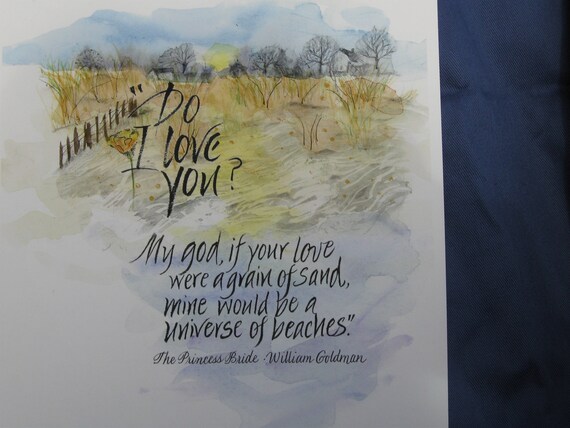 "Do
I love
you?
My god, if your love
were a grain of sand,
mine would be a
universe of beaches."
The Princess Bride · William Goldman